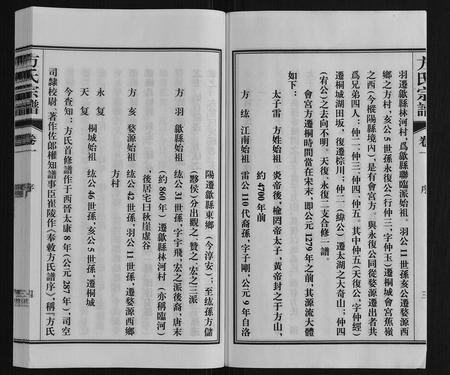 方氏宗譜
卷一
序
三
羽遷歙縣林河村，爲歙縣聯臨派始祖。羽公11世孫亥公遷婺源西
鄉之方村，亥公5世孫永復公(行仲三、字仲玉)遷桐城會宮蕉嶺
之西(今樅陽縣境內)，是有會宮方。與永復公同從婺源遷出者共
爲兄弟四人：仲二、仲三、仲四、仲五。其中仲五(天復公，字仲經)
遷桐城湖田坂，復遷棕川；仲二(緯公)遷太湖之大奇山；仲四
(宥公)之去向不明。天復、永復二支合修一譜。
會宮方遷桐時間當在宋末，即公元1279年之前，其源流大體
如下：
太子雷 方姓始祖 炎帝後，榆罔帝太子，黃帝封之于方山，
約4700年前
方 紘 江南始祖 雷公110代裔孫，字子剛，公元9年自洛
陽遷歙縣東鄉(今淳安)；至紘孫方儲
(黟侯)分出觀之、贊之、宏之三派
方 羽 歙縣始祖 紘公31世孫，字宇飛，宏之派後裔，唐末
(約860年)遷歙縣林河村(亦稱臨河)
，後居宅曰秋崖虛谷
方 亥 婺源始祖 紘公42世孫，羽公11世孫，遷婺源西鄉
方村
永 復
天 復 桐城始祖 紘公46世孫，亥公5世孫，遷桐城
今查知：方氏首修譜作于西晉太康8年(公元287年)，司空
司隸校尉、著作佐郎權知譜事臣崔陵作《奉敕方氏譜序》，稱「方氏
方氏宗譜
卷一
序